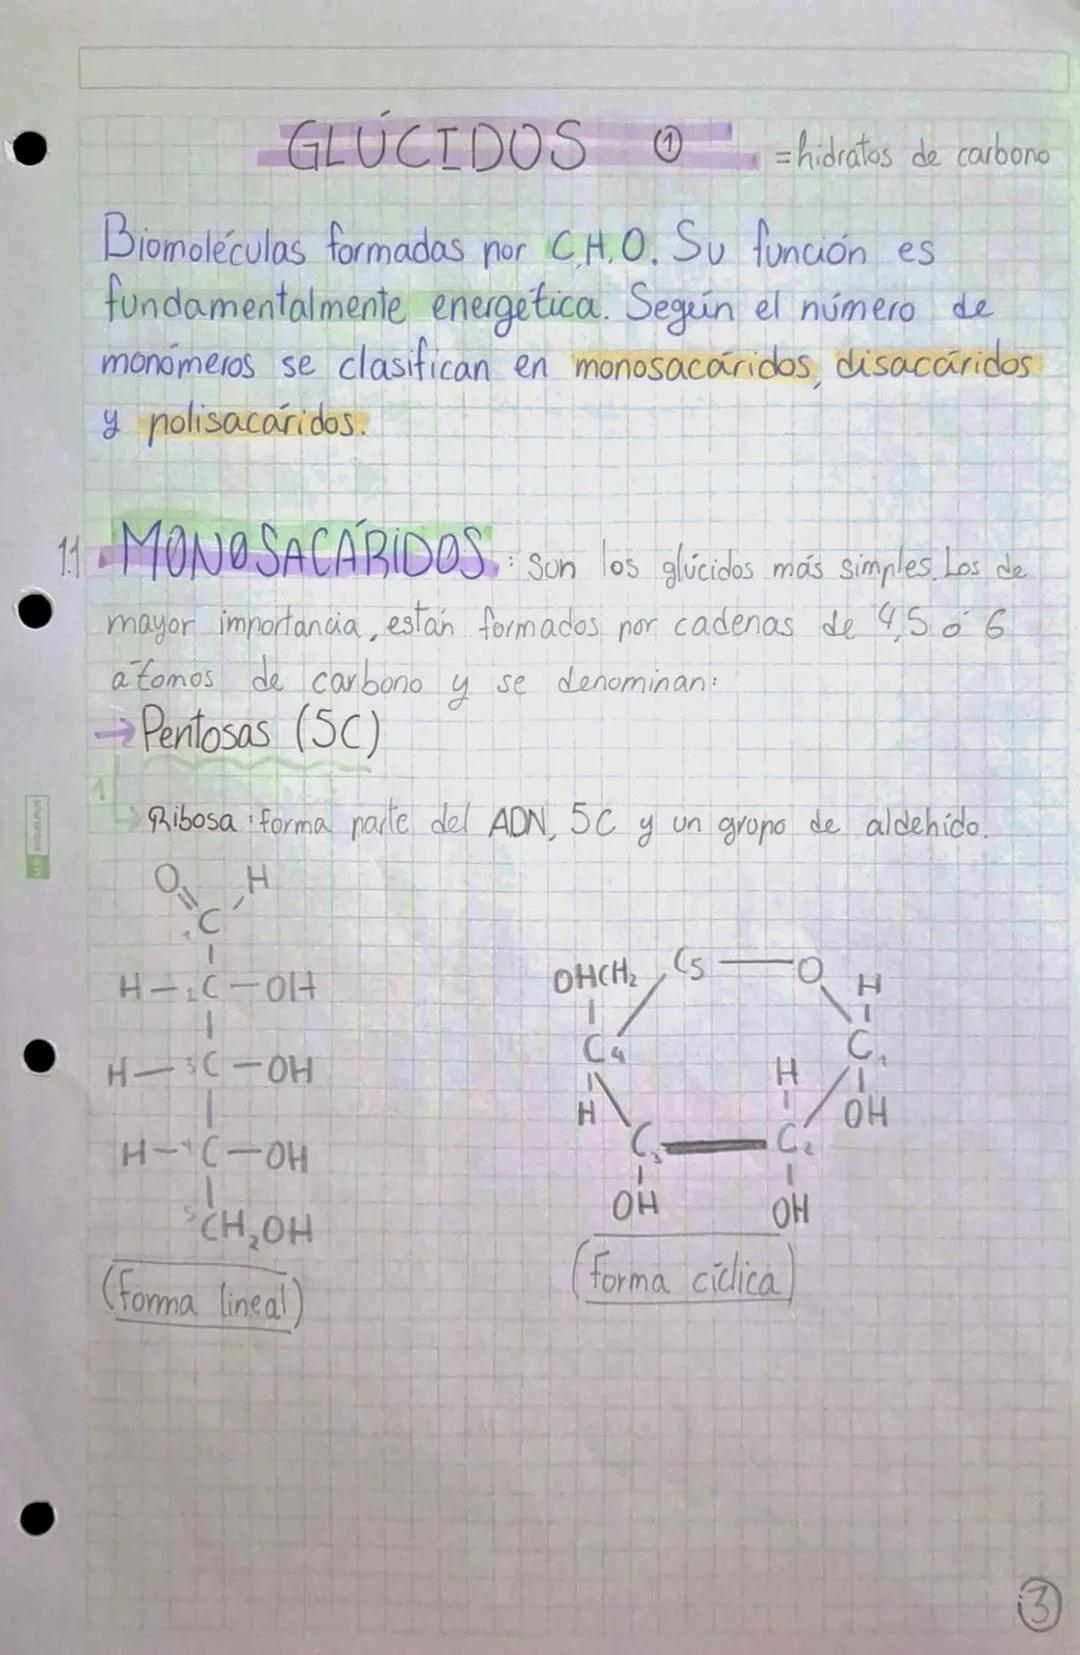 GLÚCIDOS ① = hidratos de carbono
Biomoléculas formadas por C,H,O. Su función es
fundamentalmente energética. Según el número de
monómeros se clasifican en monosacáridos, disacáridos
y polisacáridos.
1.1 MONOSACÁRIDOS: Son los glúcidos más simples. Los de
mayor importancia, están formados por cadenas de 4,5 ó 6
átomos de carbono y se denominan:
→ Pentosas (5C)
Ribosa: forma parte del ADN, 5C y un grupo de aldehido.
O H
1C
H-2C-OH
H-3C-OH
H-4C-OH
5CH₂OH
(forma lineal)
OHCH₂ C5 O H
C4 C1
H H OH
C3 C2
OH OH
(forma cíclica)
3